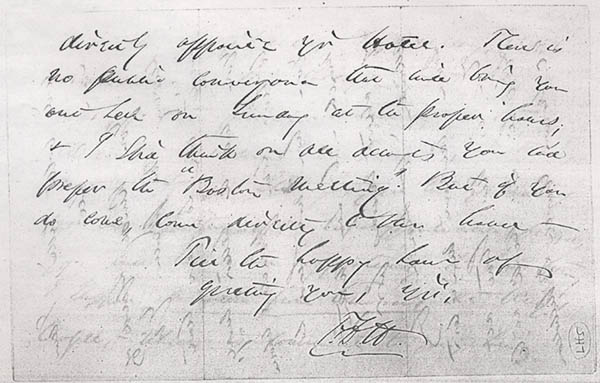 directly opposite yr Hotel. There is
no public conveyance that will bring you
out here on Sunday at the proper hours,
& I shd think on all accounts you wd
prefer the "Boston Meeting". But if you
do come, come directly to this house —
Till the happy hour of
greeting you, Yrs,